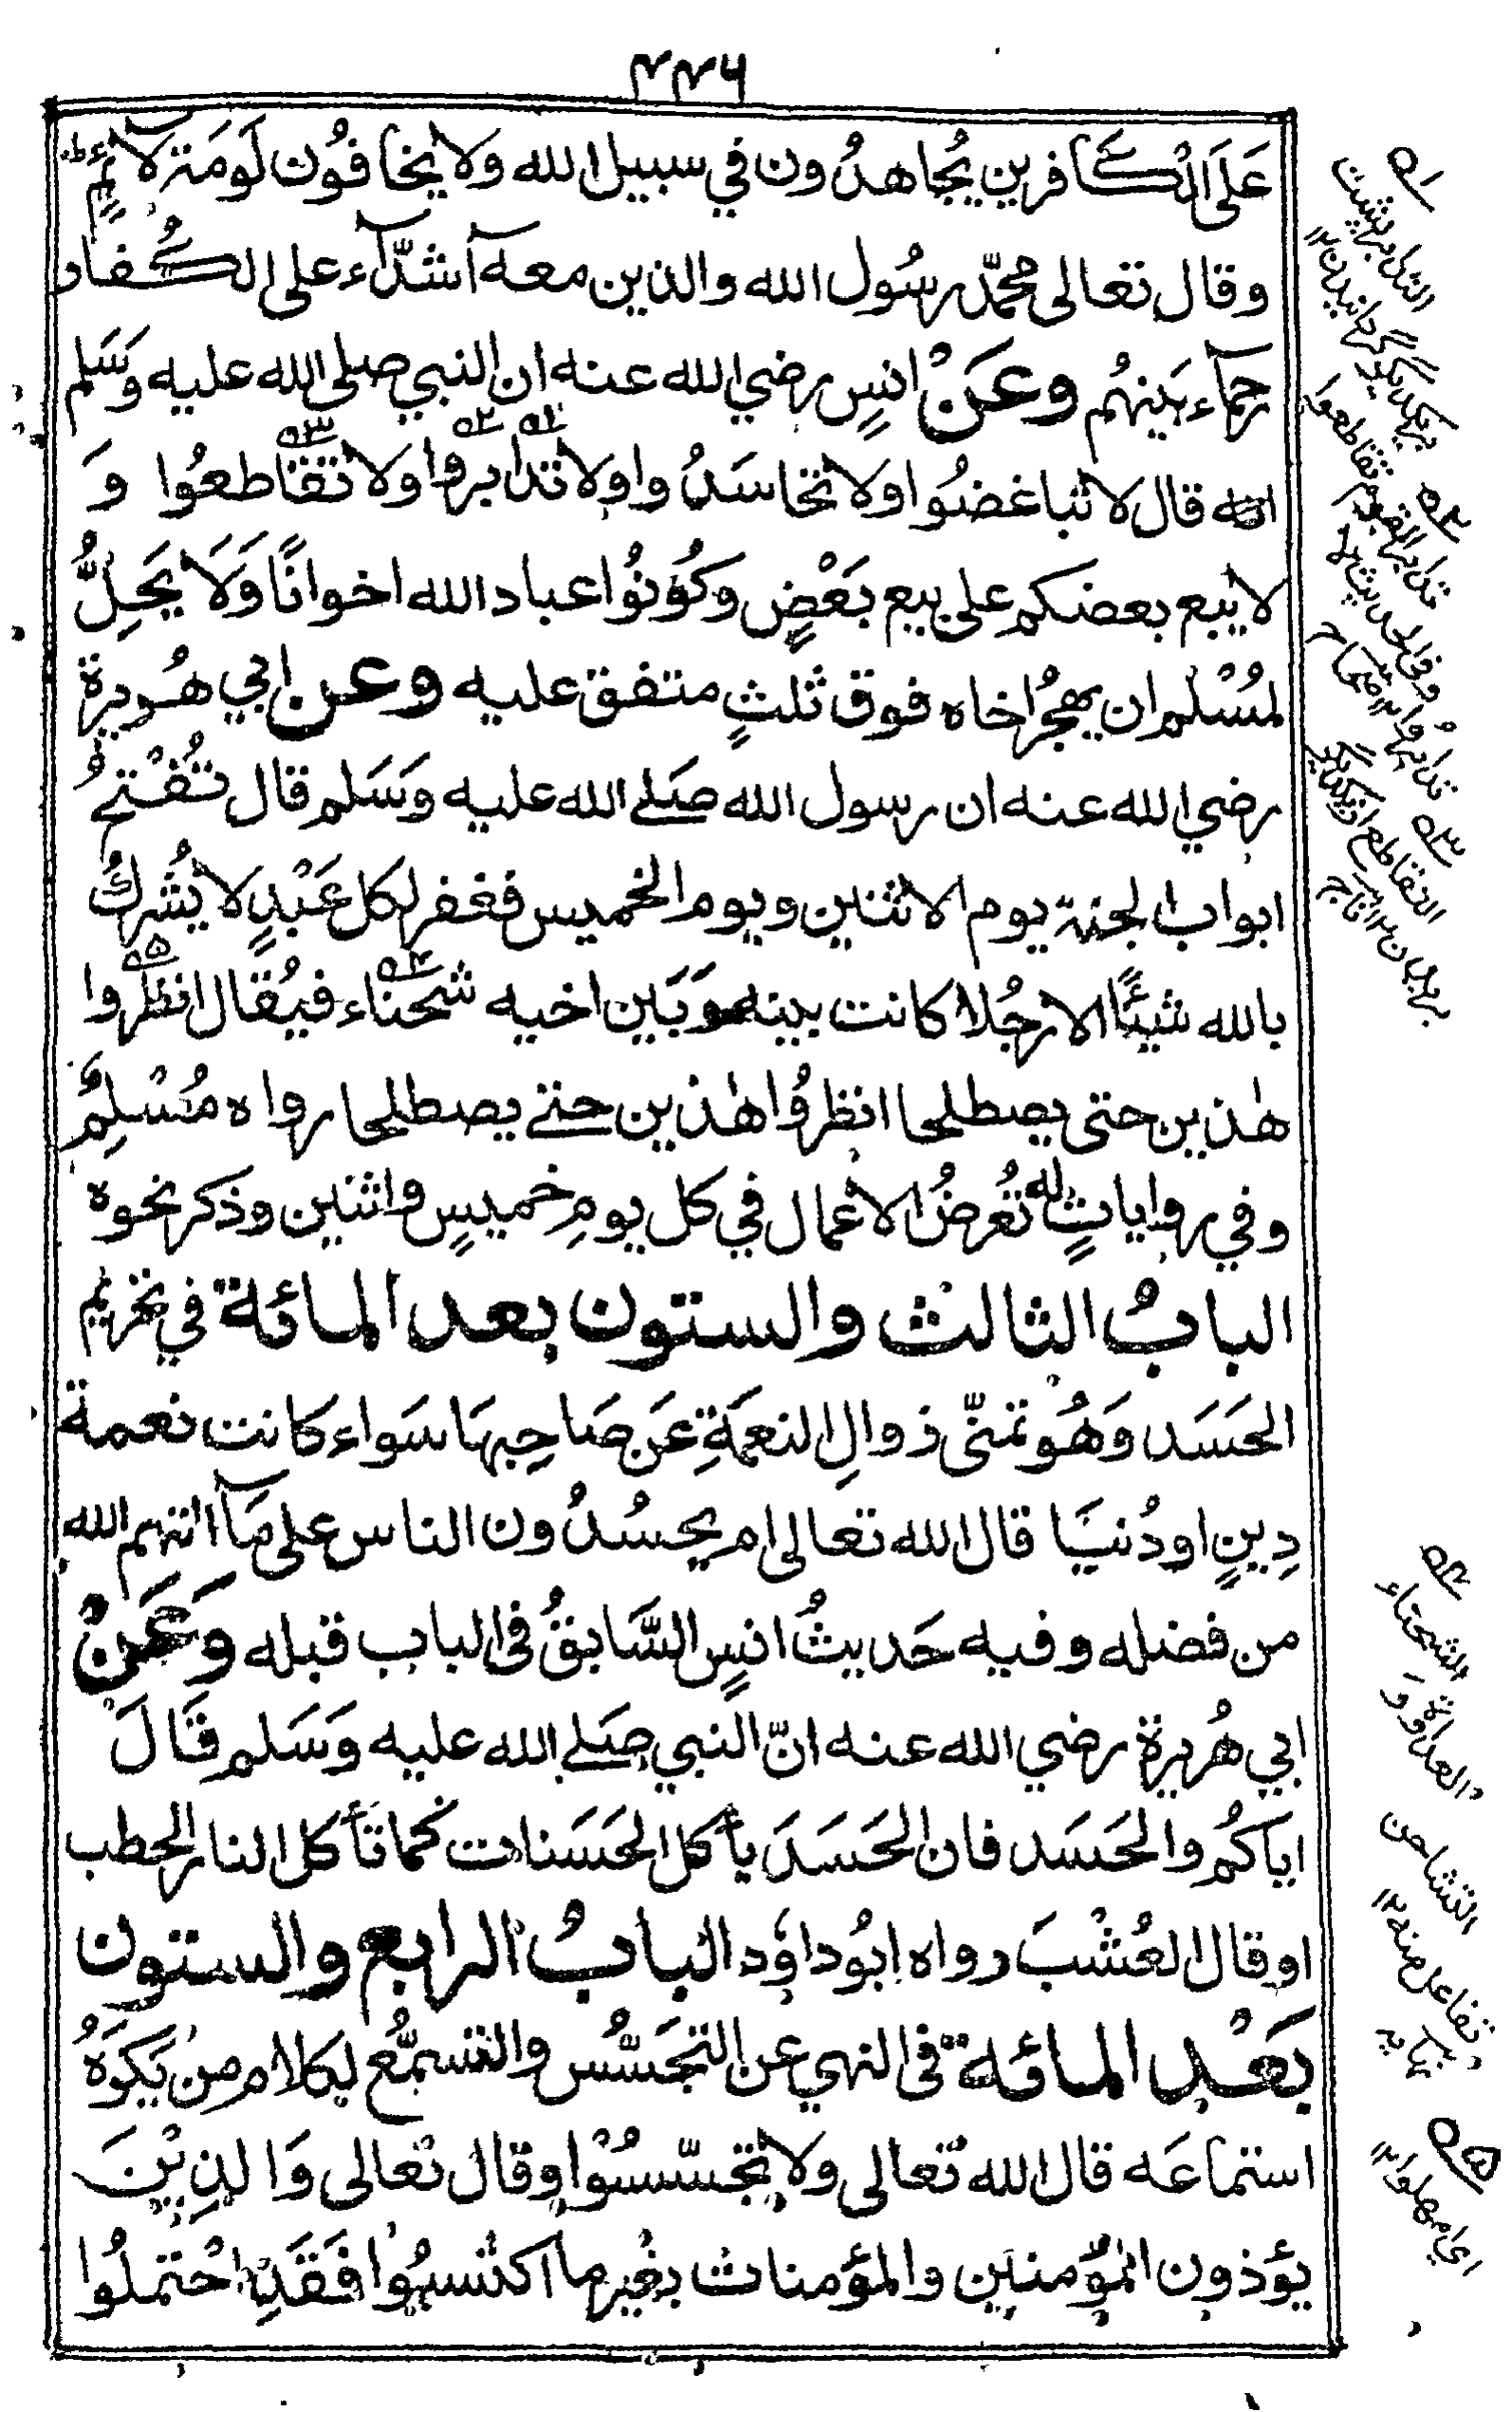 ۴۴۶
عَلَى الْكَافرين يُجاهدُون في سبيل الله ولا يخافُون لَومَة لآئمٍ
وقال تعالى محمّد رسُول الله والذين معه آشدّآء على الكُفار
رحمآء بَينهُم وعَنْ انسٍ رضي الله عنه ان النبي صلى الله عليه وَسَلم
انه قال لا تباغضُوا ولا تحاسَدُوا ولا تدابروا ولا تقاطعُوا وَ
لا يبع بعضكم على بيع بَعْضٍ وكُونُوا عباد الله اخوانًا وَلَا يَحِلُّ
لمُسْلم ان يهجُر اخاه فوق ثلثٍ متفق عليه وعن ابي هُريرة
رضي الله عنه ان رسول الله صَلے الله عليه وَسَلم قال تُفْتحُ
ابواب الجنة يوم الاثنين ويوم الخميس فغفر لكل عَبْدٍ لا يُشركُ
بالله شيئًا الا رجُلا كانت بينه وَبَين اخيه شحناء فيُقال انظروا
هٰذين حتى يصطلحا انظرُوا هٰذين حتے يصطلحا رواه مُسْلِمٌ
وفي رواياتٍ له تُعْرضُ الاعمال في كل يومِ خميسٍ واثنين وذكر نحوه
البابُ الثالث والستون بعد المائة في تحريم
الحَسَد وَهُو تمنّى زوالِ النعمَةِ عَن صَاحِبهَا سَواء كانت نعمة
دِينٍ او دُنيَا قال الله تعالى ام يحسُدُون الناس على مَآ اتٰهم الله
من فضله وفيه حَديثُ انسٍ السَّابقُ فى الباب قبله وَعَنْ
ابي هُريرة رضي الله عنه انّ النبي صَلے الله عليه وَسَلم قَالَ
اياكُم والحَسَد فان الحَسَدَ يأكل الحَسَنات كما تأكل النار الحطب
او قال العُشْبَ رواه ابُو داوٗد البابُ الرابع والستون
بَعْد المائة فى النهي عن التجَسُّس والتسمُّع لكلام من يَكرَهُ
استماعَه قال الله تعالى ولا تجسّسُوْا وقال تعالى وَالذِيْنَ
يؤذون المؤمنين والمؤمنات بغير ما اكتسبُوا فَقَدِ احْتملُوا
۱ه
التدابر پشت
بریکدیگر گردانیدن ۱۲
۲ه
تدابر القوم تقاطعوا
۳ه
التقاطع از یکدیگر
بریدن ۱۲ تاج
۴ه
الشحناء
العداوة و
التشاحن
تفاعل منه ۱۲
۵ه
اي امهلوا ۱۲